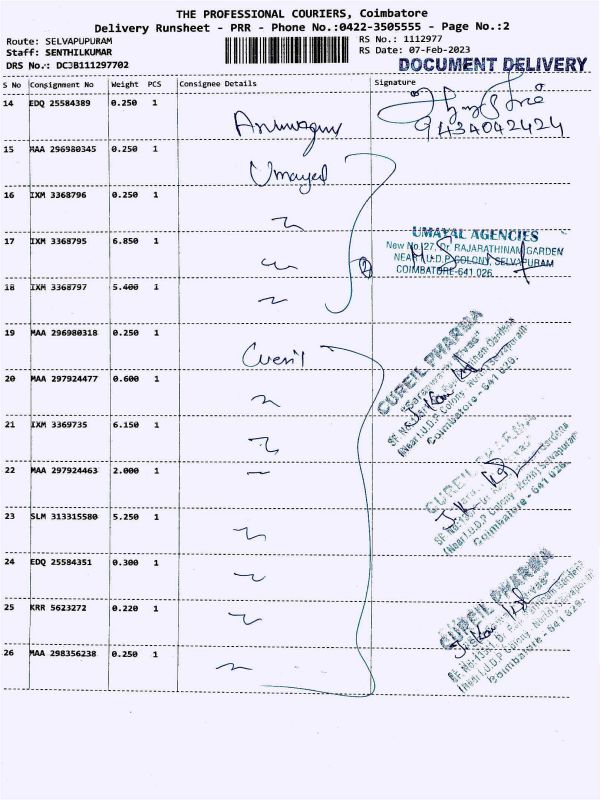 THE PROFESSIONAL COURIERS, Coimbatore
Delivery Runsheet - PRR - Phone No.:0422-3505555 - Page No.:2
Route: SELVAPUPURAM
RS No.: 1112977
Staff: SENTHILKUMAR
RS Date: 07-Feb-2023
DRS No.: DCJB111297702
DOCUMENT DELIVERY
S No Consignment No Weight PCS Consignee Details Signature
14 EDQ 25584389 0.250 1
9434042424
15 MAA 296980345 0.250 1 Umayal
16 IXM 3368796 0.250 1
17 IXM 3368795 6.850 1
UMAYAL AGENCIES
New No 27, Dr. RAJARATHINAM GARDEN
NEAR I.U.D.P. COLONY, SELVAPURAM
COIMBATORE-641 026
18 IXM 3368797 5.400 1
19 MAA 296980318 0.250 1 Cureil
CUREIL PHARMA
(Near I.U.D.P Colony - North) Selvapuram
Coimbatore - 641 026.
20 MAA 297924477 0.600 1
21 IXM 3369735 6.150 1
22 MAA 297924463 2.000 1
(Near I.U.D.P Colony - North) Selvapuram
Coimbatore - 641 026.
23 SLM 313315580 5.250 1
24 EDQ 25584351 0.300 1
25 KRR 5623272 0.220 1
CUREIL PHARMA
(Near I.U.D.P Colony - North) Selvapuram
Coimbatore - 641 026.
26 MAA 298356238 0.250 1